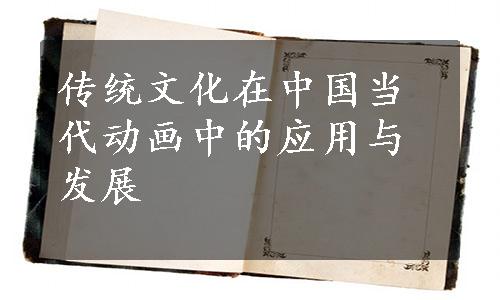 传统文化在中国当
代动画中的应用与
发展